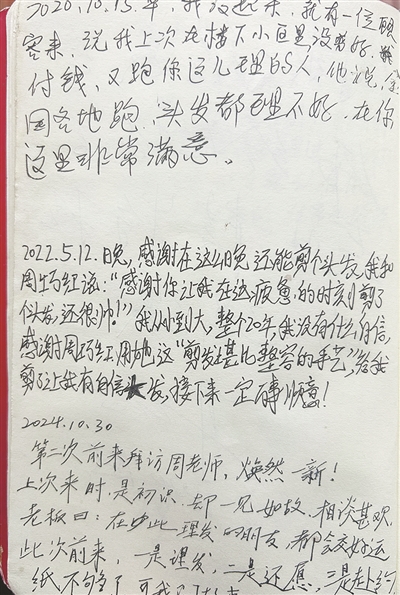 2020.10.15.早，我没起床，就有一位顾
客来，说我上次在楼下小区里没剪好，
付钱，又跑你这儿理的人，他说，全
国各地跑，头发都理不好，在你
这里非常满意。
2022.5.12.晚，感谢在这么晚还能剪个头发，我和
周巧红说："感谢你让我在这疲惫的时刻剪了
个头发，还很帅！"我从小到大，整个20年，我没有什么自信，
感谢周巧红，用她这"剪发堪比整容的手艺"，给我
剪了让我有自信头发，接下来一定万事顺意！
2024.10.30
第二次前来拜访周老师，焕然一新！
上次来时，是初识，却一见如故，相谈甚欢
老板曰：在此理发的朋友，都会交好运
此次前来，一是理发，二是还愿，三是赴约
纸不够了